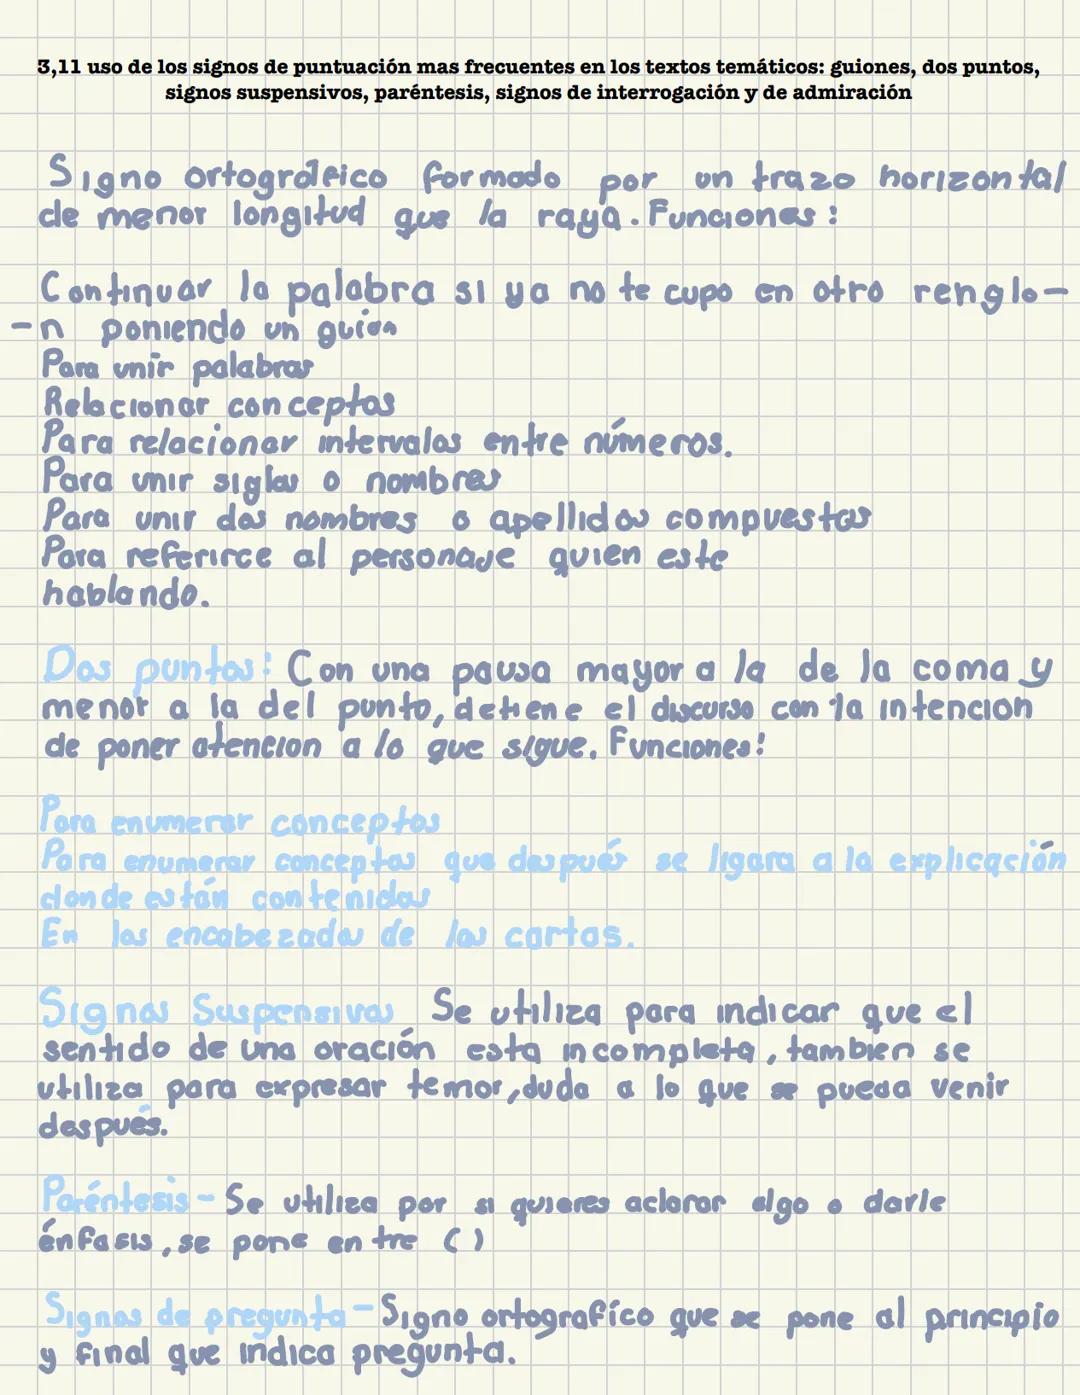 3,11 uso de los signos de puntuación mas frecuentes en los textos temáticos: guiones, dos puntos,
signos suspensivos, paréntesis, signos de interrogación y de admiración
Signo ortográfico formado por un trazo horizontal
de menor longitud que la raya. Funciones:
Continuar la palabra si ya no te cupo en otro renglo-
-n poniendo un guion
Para unir palabras
Relacionar conceptos
Para relacionar intervalos entre números.
Para unir siglas o nombres
Para unir dos nombres o apellidos compuestos
Para referirce al personaje quien este
hablando.
Dos puntos: Con una pausa mayor a la de la coma y
menor a la del punto, detiene el discurso con la intencion
de poner atencion a lo que sigue. Funciones:
Para enumerar conceptos
Para enumerar conceptos que después se ligara a la explicación
donde están contenidos
En los encabezados de las cartas.
Signos Suspensivos Se utiliza para indicar que el
sentido de una oración esta incompleta, tambien se
utiliza para expresar temor, duda a lo que se pueda venir
después.
Paréntesis - Se utiliza por si quieres aclarar algo o darle
énfasis, se pone entre ( )
Signos de pregunta - Signo ortografíco que se pone al principio
y final que indica pregunta.